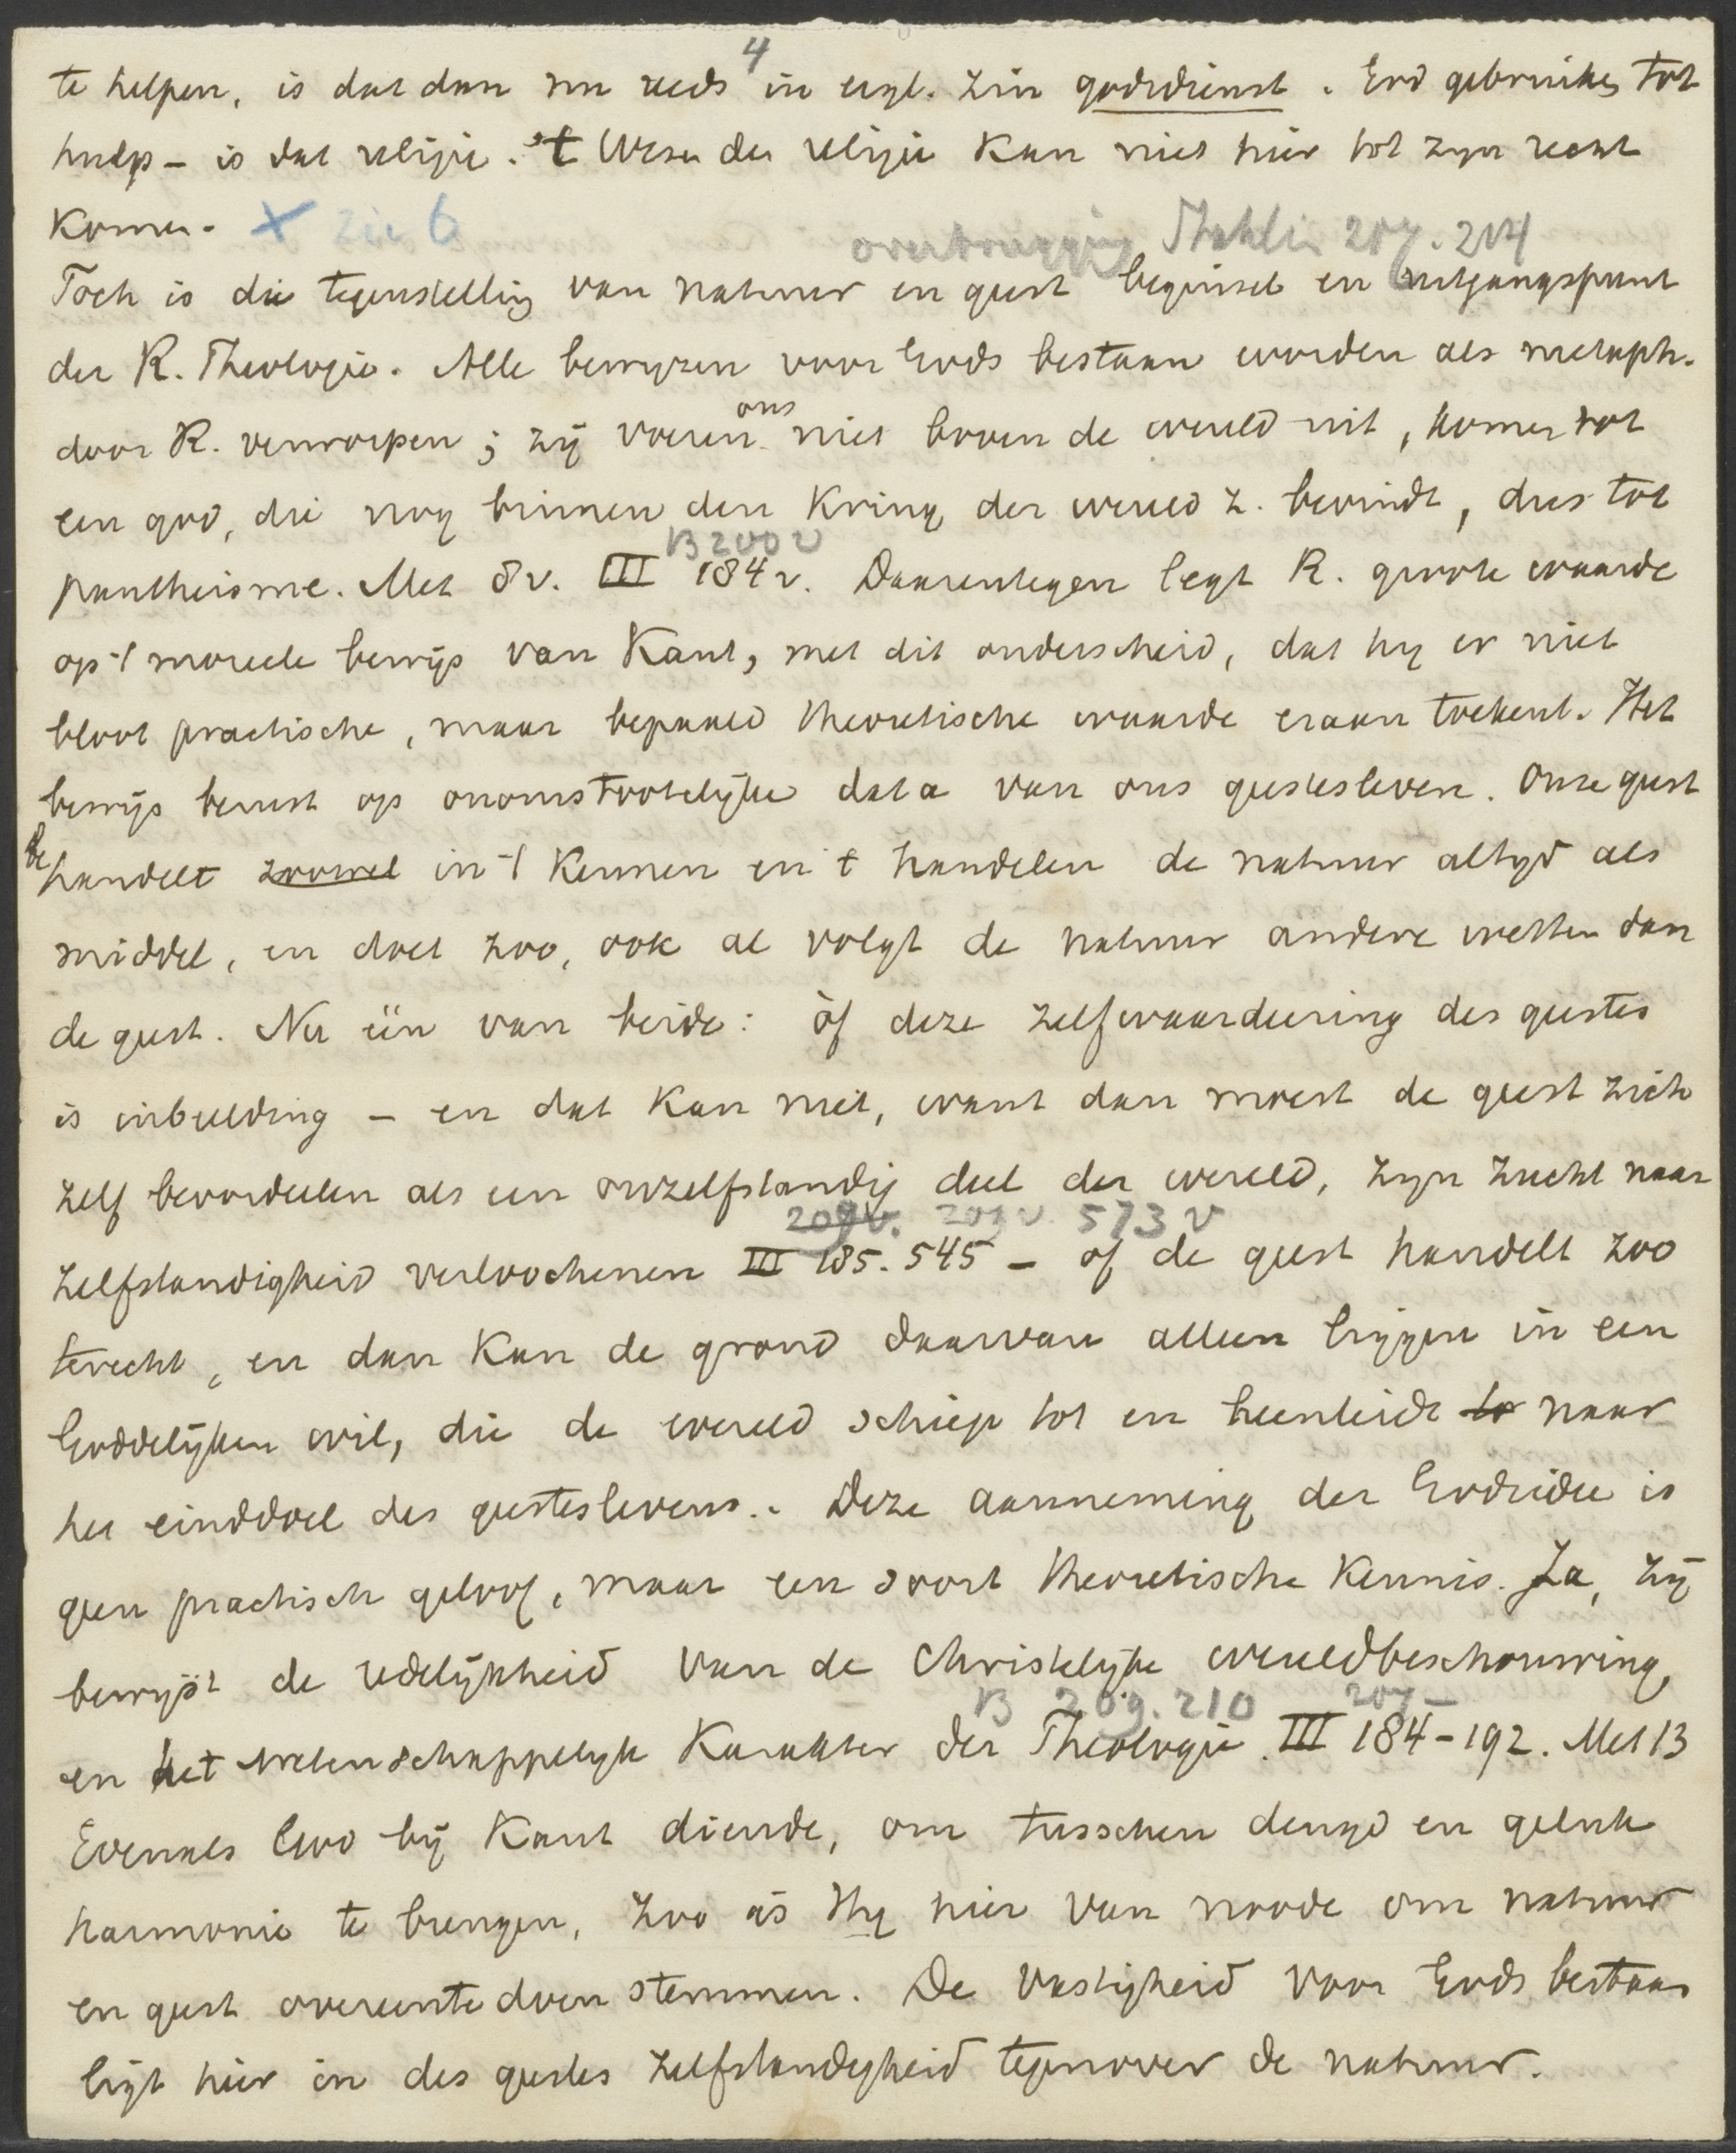 4
te helpen, is dat dan nu reeds in eigl. zin godsdienst. God gebruiken tot
hulp - is dat religie. 't Wezen der religie kan niet hier tot zyn recht
komen. X Zie 6
overtuiging Stählin 207. 204
Toch is die tegenstelling van natuur en geest beginsel en uitgangspunt
der R. Theologie. Alle bewyzen voor Gods bestaan worden als metaph.
door R. verworpen; zij voeren ons niet boven de wereld uit, komen tot
een god, die nog binnen den Kring der wereld z. bevindt, dus tot
B 200 v
pantheisme. Met 8 v. III 184 v. Daarentegen legt R. groote waarde
op 't moreele bewijs van Kant, met dit onderscheid, dat hy er niet
bloot practische, maar bepaald theoretische waarde eraan toekent. Het
bewijs berust op onomstootelijke data van ons geestesleven. Onze geest
behandelt zoowel in 't Kennen en 't handelen de natuur altyd als
middel, en doet zoo, ook al volgt de natuur andere wetten dan
de geest. Nu één van beide: òf deze zelfwaardeering des geestes
is inbeelding - en dat kan niet, want dan moest de geest zich
zelf beoordeelen als een onzelfstandig deel der wereld, zyn zucht naar
209v. 201 v. 573 v
zelfstandigheid verloochenen III 185. 545 - of de geest handelt zoo
terecht, en dan kan de grond daarvan alleen liggen in een
Goddelijken wil, die de wereld schiep tot en heenleidt to naar
het einddoel des geesteslevens. Deze aanneming der Godsidee is
geen practisch geloof, maar een soort theoretische Kennis. Ja, zij
bewijst de redelijkheid van de Christelijke wereldbeschouwing,
B 209. 210 207-
en het wetenschappelyk Karakter der Theologie. III 184-192. Met 13
Evenals God bij Kant diende, om tusschen deugd en geluk
harmonie te brengen, zoo is Hy hier van noode om natuur
en geest overeen te doen stemmen. De vastigheid voor Gods bestaan
ligt hier in des geestes zelfstandigheid tegenover de natuur.